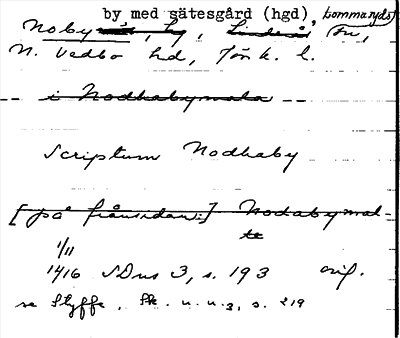 by med sätesgård (hgd), Bommaryds
Noby, by, Linderås sn,
N. Vedbo hd, Jönk. l.
i Nodhabymala
Scriptum Nodhaby
[på frånsidan:] Nodabymal-
te
1/11
1416 SD ns 3, s. 193 orig.
se Styffe, Sk. u. u. 3, s. 219